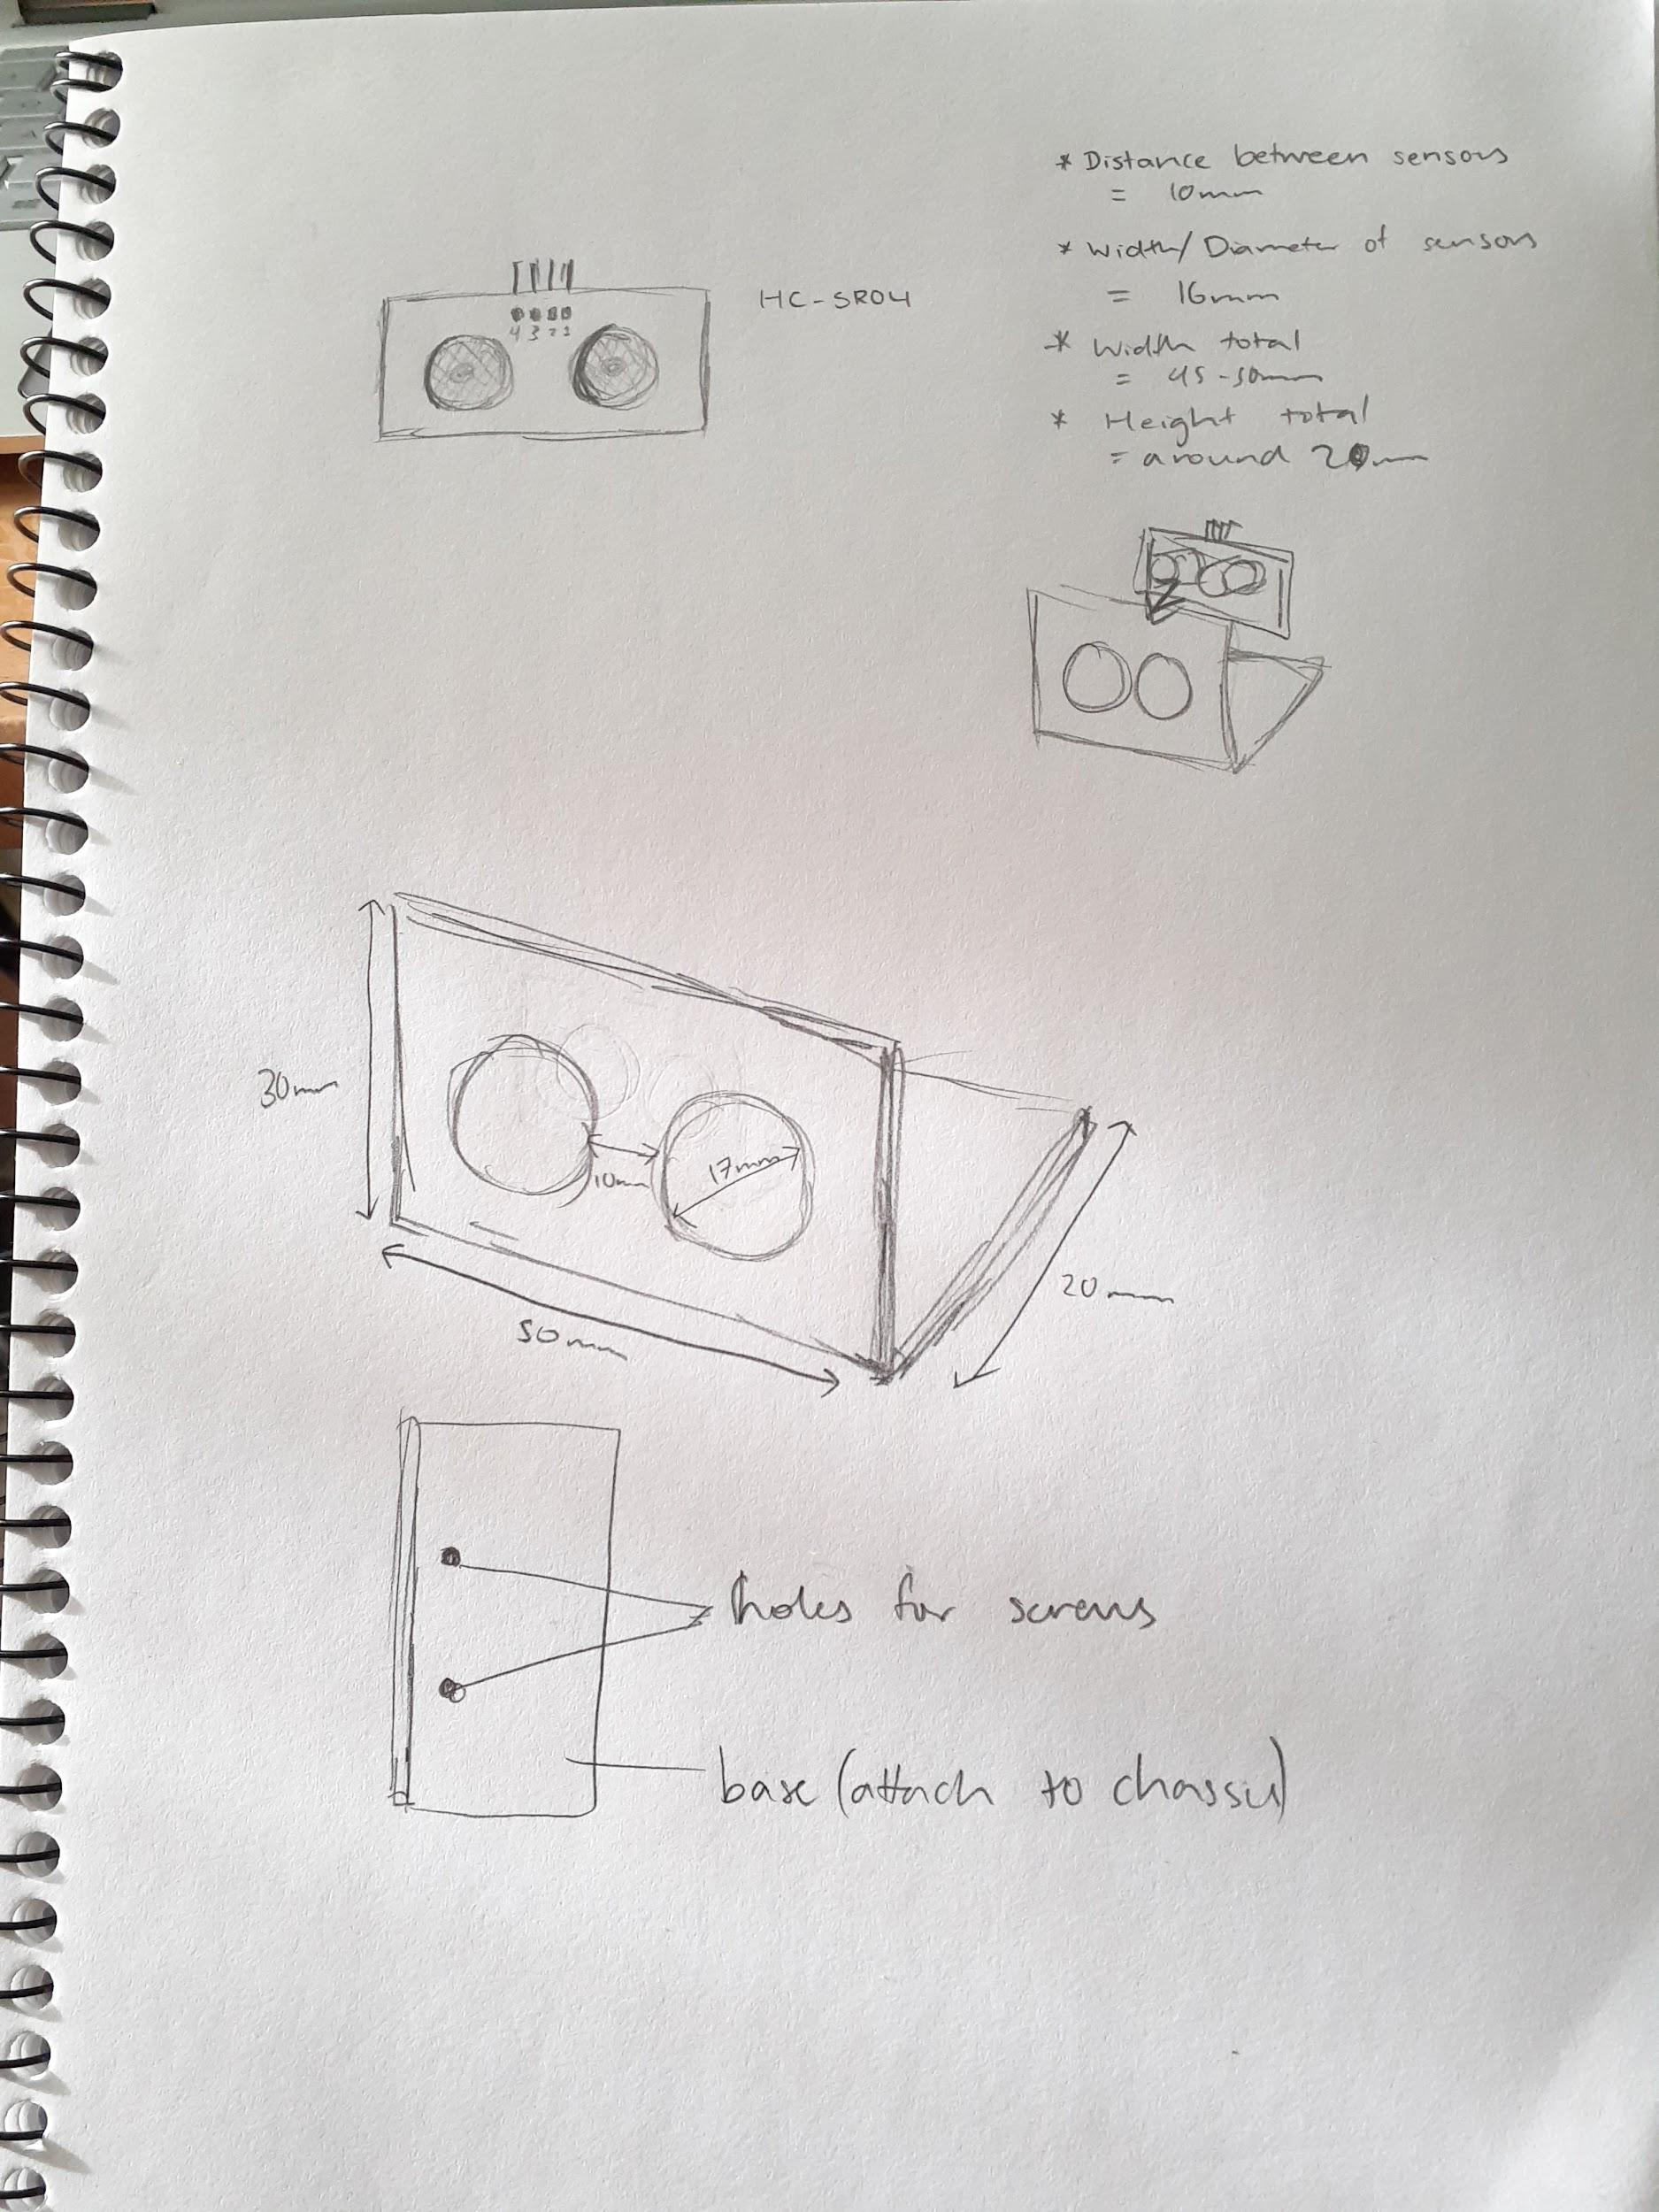 * Distance between sensors
= 10mm
* Width/Diameter of sensors
= 16mm
* Width total
= 45-50mm
* Height total
= around 20mm
HC-SR04
4 3 2 1
30mm
10mm
17mm
50mm
20mm
holes for screws
base (attach to chassu)